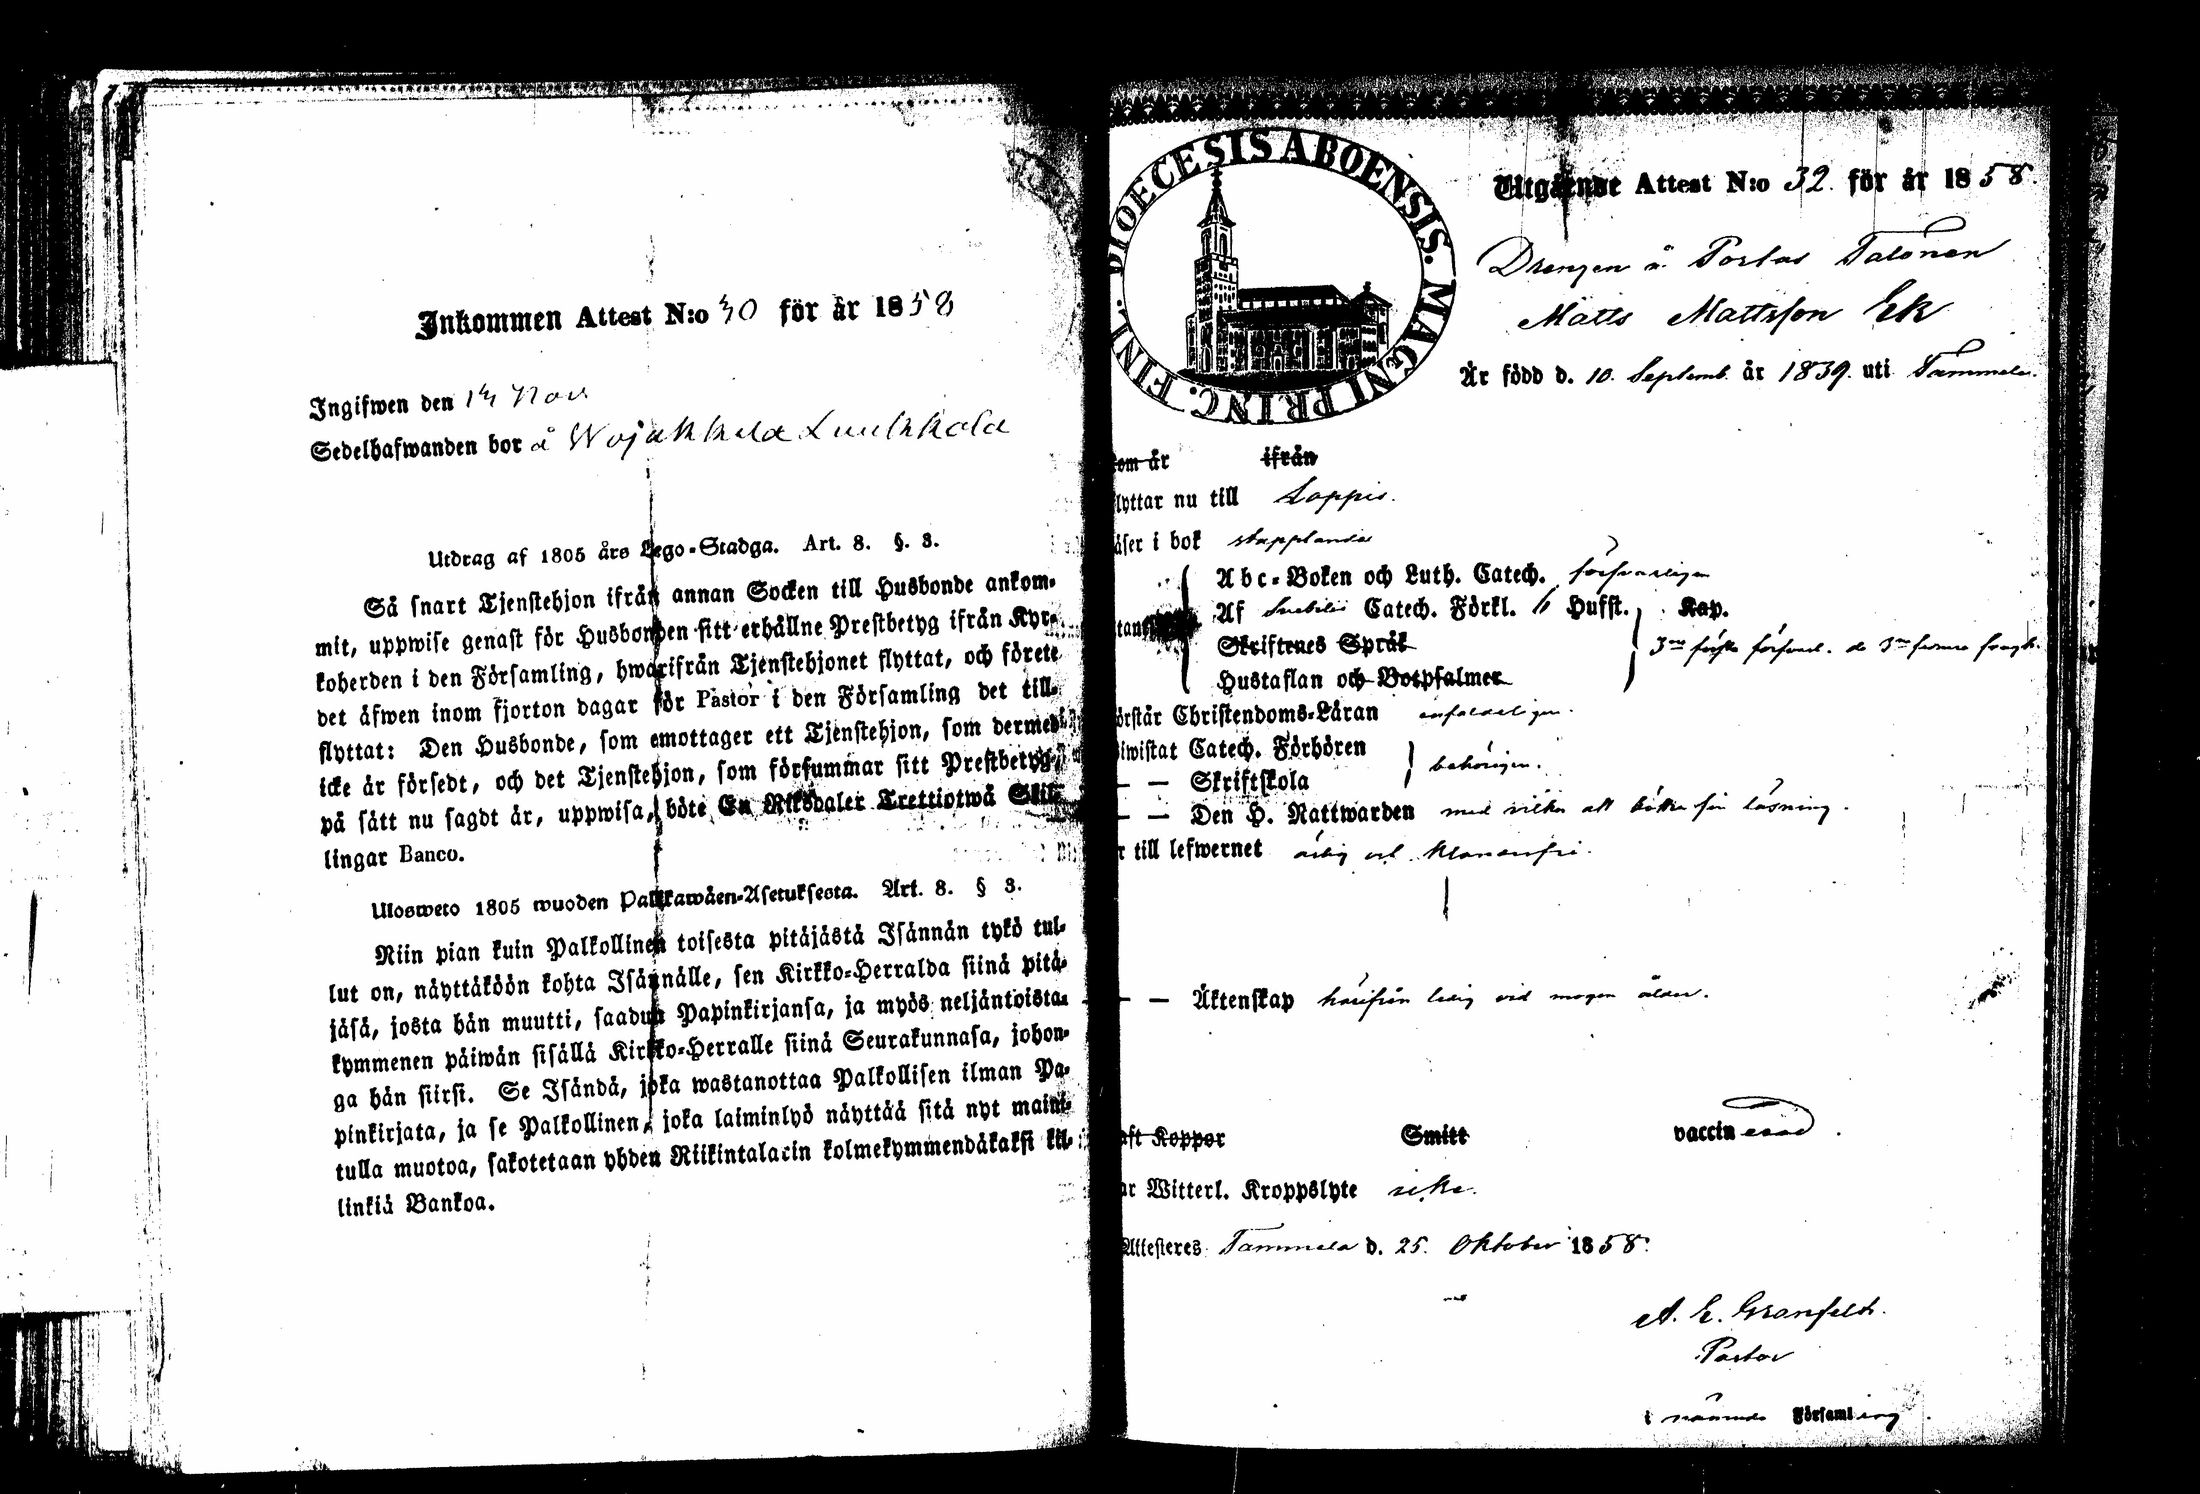 Inkommen Attest N:o 30 för år 1858
Ingifwen den 14 Nov
Sedelhafwanden bor å Wojakkala Luukkala
Utdrag af 1805 års Lego-Stadga. Art. 8. §. 3.
Så snart Tjenstehjon ifrån annan Socken till Husbonde ankom-
mit, uppwise genast för Husbonden sitt erhållne Prestbetyg ifrån Kyr-
koherden i den Församling, hwarifrån Tjenstehjonet flyttat, och förete
det äfwen inom fjorton dagar för Pastor i den Församling det till-
flyttat: Den Husbonde, som emottager ett Tjenstehjon, som dermed
icke är försedt, och det Tjenstehjon, som försummar sitt Prestbetyg,
på sätt nu sagdt är, uppwisa, böte En Riksdaler Trettiotwå Skil-
lingar Banco.
Ulosweto 1805 wuoden Palkkawäen-Asetuksesta. Art. 8. § 3.
Niin pian kuin Palkollinen toisesta pitäjästä Isännän tykö tul-
lut on, näyttäköön kohta Isännälle, sen Kirkko-Herralda siinä pitä-
jäsä, josta hän muutti, saadun Papinkirjansa, ja myös neljäntoista-
kymmenen päiwän sisällä Kirkko-Herralle siinä Seurakunnasa, johon-
ga hän siirsi. Se Isändä, joka wastanottaa Palkollisen ilman Pa-
pinkirjata, ja se Palkollinen, joka laiminlyö näyttää sitä nyt maini-
tulla muotoa, sakotetaan yhden Riikintalarin kolmekymmendäkaksi kil-
linkiä Bankoa.
DIOECESIS ABOENSIS. MAGNI PRINC. FINL.
Utgående Attest N:o 32. för år 1858.
Drengen å Portas Talonen
Matts Mattsson Ek
Är född d. 10. Septemb. år 1839. uti Tammela.
om år ifrån
lyttar nu till Loppis.
äser i bok stapplande
Abc-Boken och Luth. Catech. försvarligen
Af Svebilii Catech. Förkl. 6 Hufst. Kap.
Skriftenes Språk
3ne första försvarl. de 3ne
Hustaflan och Botpsalmer
örstår Christendoms-Läran enfaldeligen.
iwistat Catech. Förhören
behörigen.
— — Skriftskola
— — Den H. Nattwarden med vilkor att bättra sin läsning.
r till lefwernet ärlig och klanderfri.
— — Äktenskap härifrån ledig vid mogen ålder.
aft Koppor Smitt vaccinerad.
ar Witterl. Kroppslyte icke.
Attesteres Tammela d. 25. Oktober 1858.
A. E. Granfelt.
Pastor
i nämnde Församling.